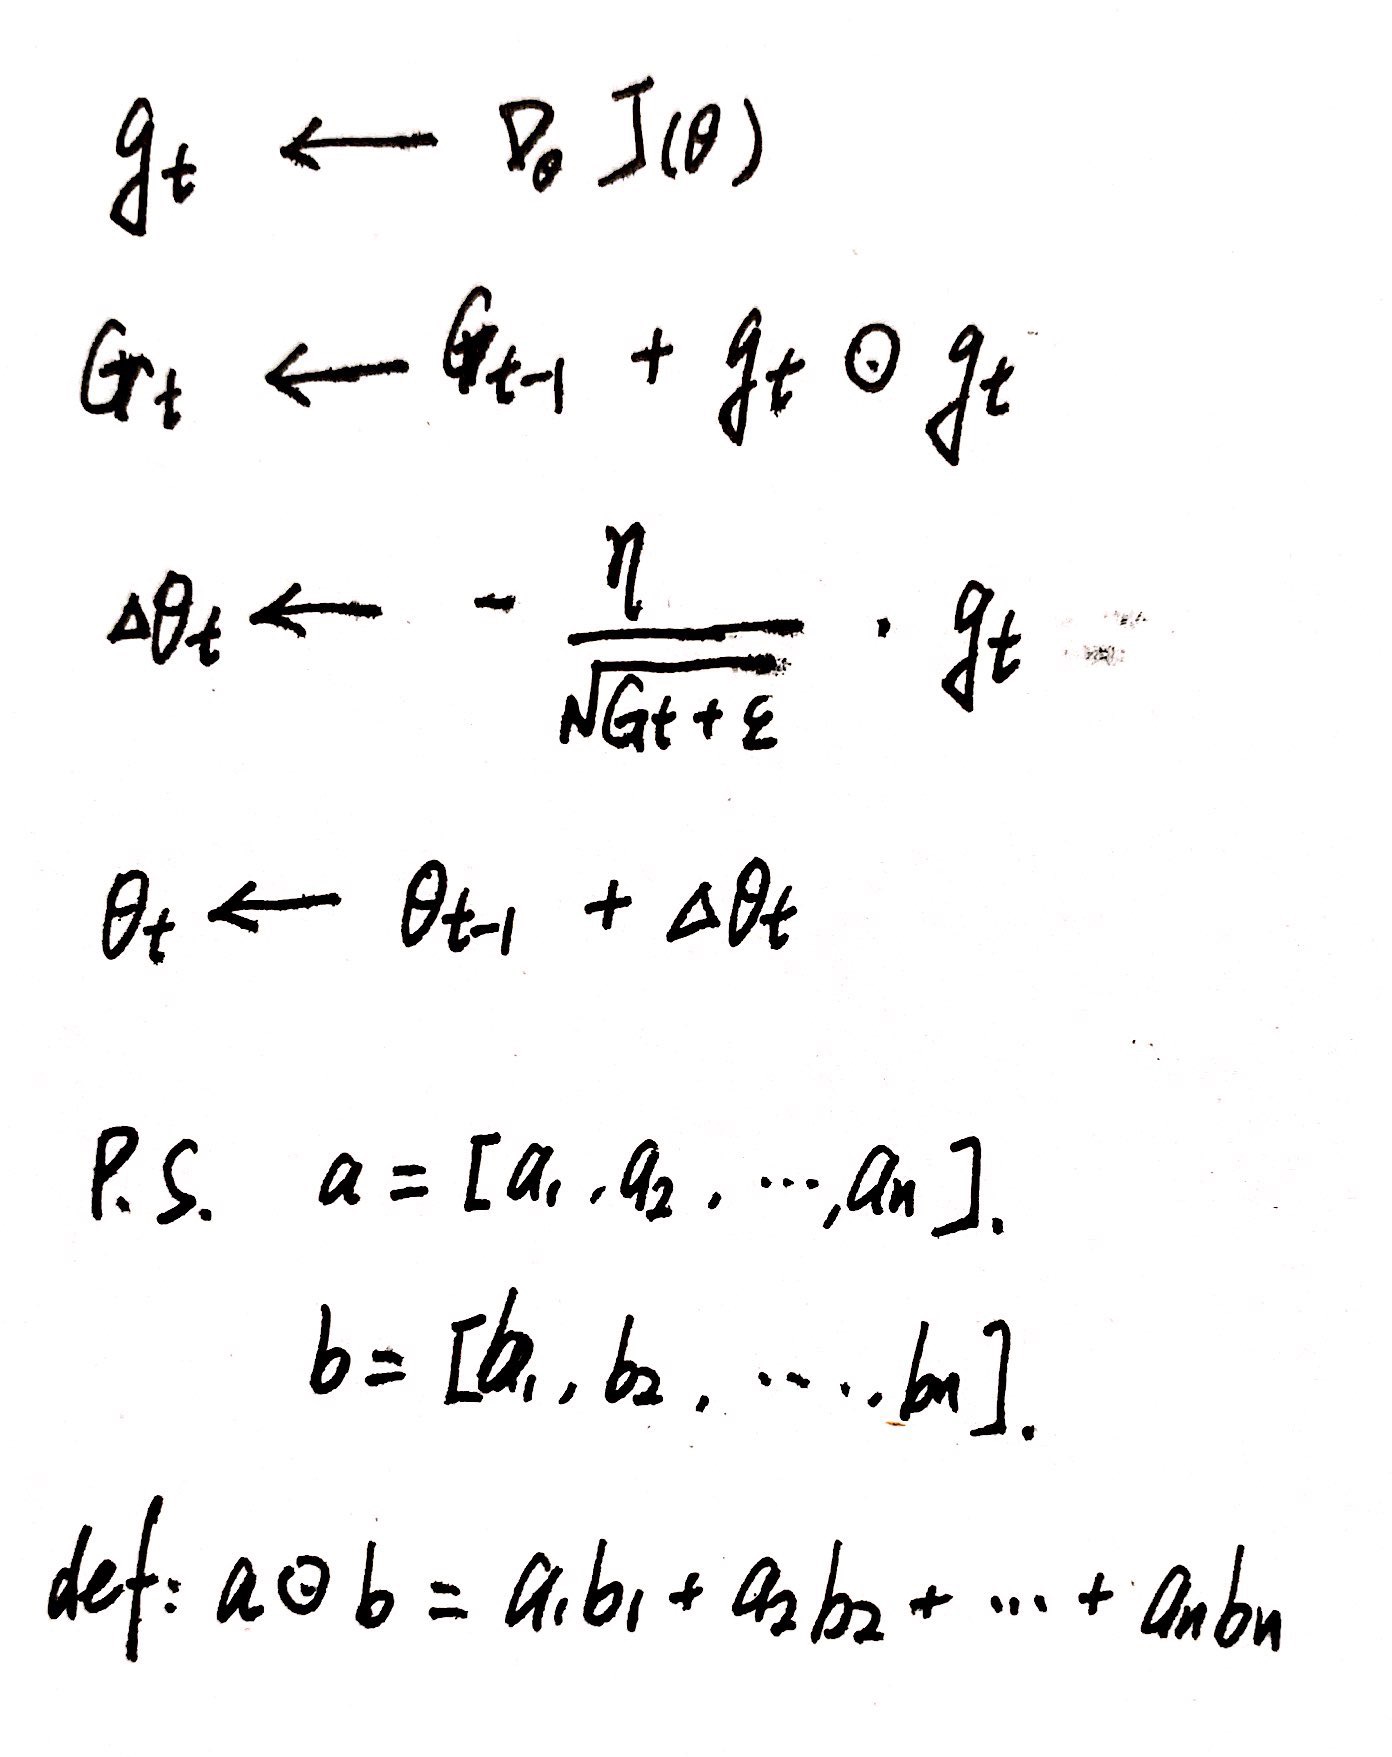 g_t ← ∇_θ J(θ)
G_t ← G_{t-1} + g_t ⊙ g_t
Δθ_t ← - η / √(G_t + ε) · g_t
θ_t ← θ_{t-1} + Δθ_t
P.S. a = [a_1, a_2, ..., a_n].
b = [b_1, b_2, ..... b_n].
def: a ⊙ b = a_1b_1 + a_2b_2 + ... + a_nb_n